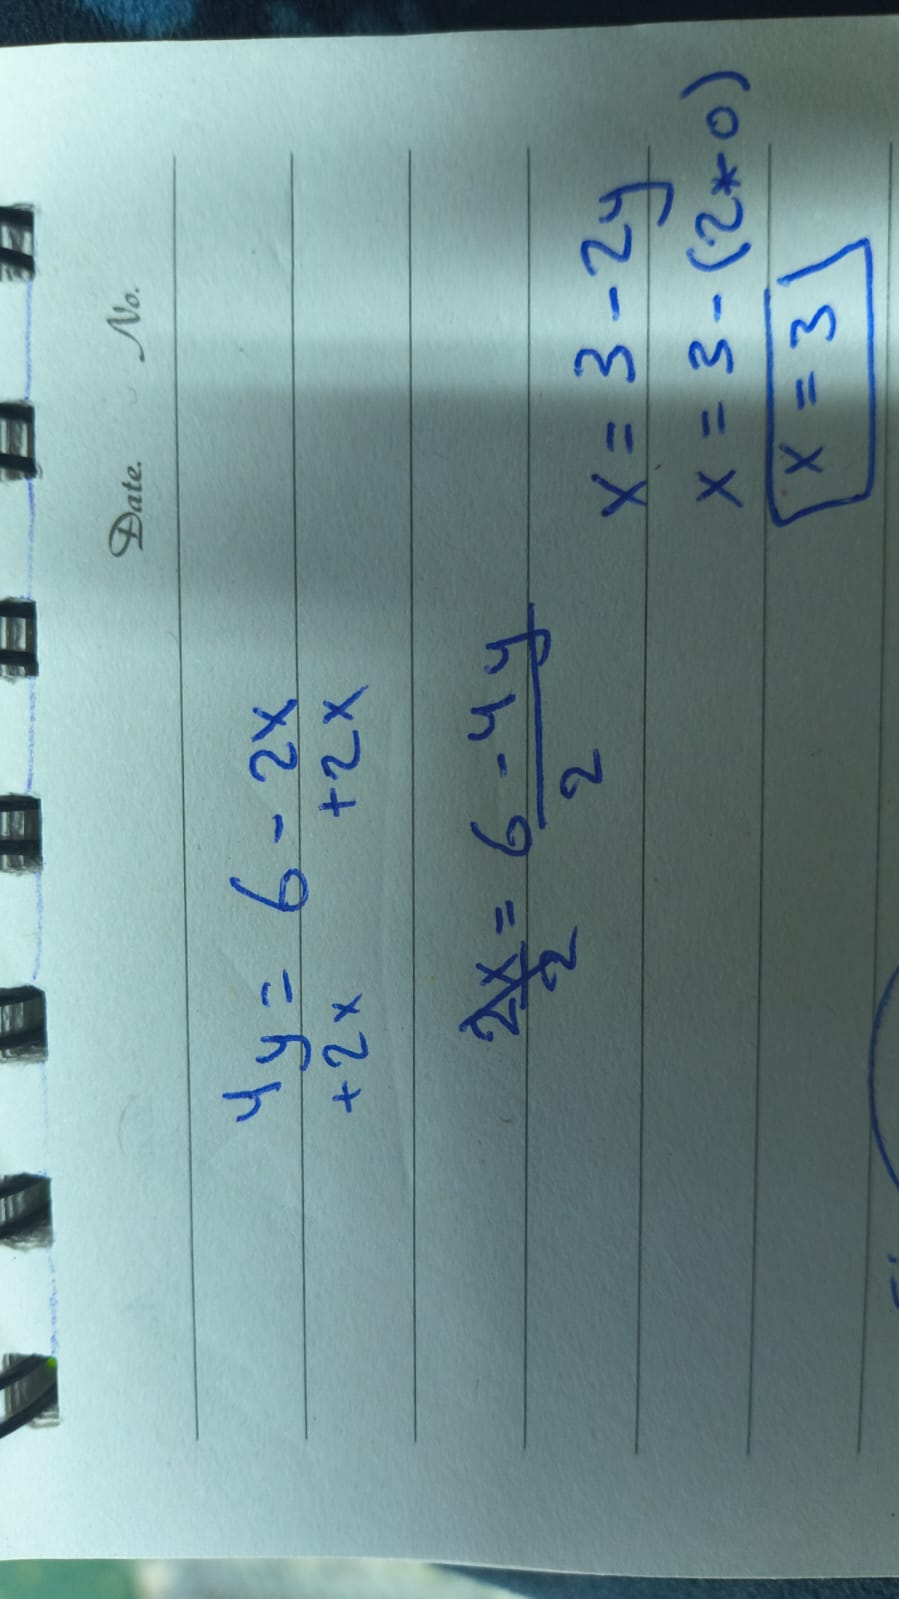 Date. No.
4y = 6 - 2x
+2x +2x
2x/2 = 6 - 4y/2
x = 3 - 2y
x = 3 - (2*0)
x = 3